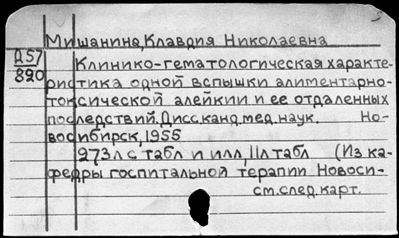 Мишанина, Клавдия Николаевна
Д57
820
Клинико-гематологическая характе-
ристика одной вспышки алиментарно-
токсической алейкии и ее отдаленных
последствий. Дисс. канд. мед. наук. Но-
восибирск, 1955
273л с табл и илл, 11л табл (Из ка-
федры госпитальной терапии Новоси-
см. след. карт.